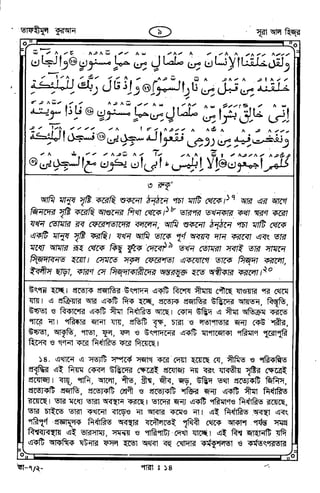 তাফহীমুল কুরআন
৯
সূরা আল হিজর
وَلَقَدْ خَلَقْنَا الْإِنْسَانَ مِنْ صَلْصَالٍ مِّنْ حَمَإٍ مَّسْنُونٍ ۞ وَالْجَانَّ
خَلَقْنٰهُ مِنْ قَبْلُ مِنْ نَّارِ السَّمُوْمِ ۞ وَإِذْ قَالَ رَبُّكَ لِلْمَلٰٓئِكَةِ
إِنِّى خَالِقٌۢ بَشَرًا مِّنْ صَلْصَالٍ مِّنْ حَمَإٍ مَّسْنُوْنٍ ۞ فَإِذَا سَوَّيْتُهٗ
وَنَفَخْتُ فِيْهِ مِنْ رُّوْحِى فَقَعُوْا لَهٗ سٰجِدِيْنَ ۞ فَسَجَدَ الْمَلٰٓئِكَةُ
كُلُّهُمْ أَجْمَعُوْنَ ۞ إِلَّآ إِبْلِيْسَ ؕ أَبٰٓى أَنْ يَّكُوْنَ مَعَ السّٰجِدِيْنَ ۞
৩ রুকূ'
আমি মানুষ সৃষ্টি করেছি শুকনো ঠন্‌ঠনে পচা মাটি থেকে।১৭ আর এর আগে
জিনদের সৃষ্টি করেছি আগুনের শিখা থেকে।১৮ তারপর তখনকার কথা স্মরণ করো
যখন তোমার রব ফেরেশতাদের বললেন, আমি শুকনো ঠন্‌ঠনে পচা মাটি থেকে
একটি মানুষ সৃষ্টি করছি। যখন আমি তাকে পূর্ণ অবয়ব দান করবো এবং তার
মধ্যে আমার রূহ থেকে কিছু ফুঁকে দেবো১৯ তখন তোমরা সবাই তার সামনে
সিজদাবনত হয়ো। সেমতে সকল ফেরেশতা একযোগে তাকে সিজদা করলো,
ইবলীস ছাড়া, কারণ সে সিজদাকারীদের অন্তরভুক্ত হতে অস্বীকার করলো।২০
উৎপন্ন হচ্ছে। প্রত্যেক প্রজাতির উৎপাদন একটি বিশেষ সীমায় পৌঁছে যাওয়ার পর থেমে
যায়। এ প্রক্রিয়ার আর একটি দিক হচ্ছে, প্রত্যেক প্রজাতির উদ্ভিদের আয়তন, বিস্তৃতি,
উচ্চতা ও বিকাশের একটি সীমা নির্ধারিত আছে। কোন উদ্ভিদ এ সীমা অতিক্রম করতে
পারে না। পরিষ্কার জানা যায়, প্রতিটি বৃক্ষ, চারা ও লতাপাতার জন্য কেউ শরীর,
উচ্চতা, আকৃতি, পাতা, ফুল, ফল ও উৎপাদনের একটি মাপাজোকা পরিমাণ পুরোপুরি
হিসেব ও গণনা করে নির্ধারিত করে দিয়েছে।
১৪. এখানে এ সত্যটি সম্পর্কে সজাগ করে দেয়া হয়েছে যে, সীমিত ও পরিকল্পিত
প্রবৃদ্ধির এই নিয়ম কেবল উদ্ভিদের ক্ষেত্রেই প্রযোজ্য নয় বরং যাবতীয় সৃষ্টির ক্ষেত্রেই
প্রযোজ্য। বায়ু, পানি, আলো, শীত, গ্রীষ্ম, জীব, জড়, উদ্ভিদ তথা প্রত্যেকটি জিনিস,
প্রত্যেকটি প্রজাতি, প্রত্যেকটি শ্রেণী ও প্রত্যেকটি শক্তির জন্য একটি সীমা নির্ধারিত
রয়েছে। তার মধ্যে তারা অবস্থান করছে। তাদের জন্য একটি পরিমাণও নির্ধারিত রয়েছে,
তার চাইতে তারা কখনো বাড়েও না আবার কমেও না। এই নির্ধারিত অবস্থা এবং
পরিপূর্ণ প্রজ্ঞামূলক নির্ধারিত অবস্থার বদৌলতেই পৃথিবী থেকে আকাশ পর্যন্ত সমগ্র
বিশ্বব্যবস্থায় এই ভারসাম্য, সমন্বয় ও পারিপাট্য দেখা যাচ্ছে। এই বিশ্ব জাহানটি যদি
একটি আকস্মিক ঘটনার ফসল হতো অথবা বহু খোদার কর্মকুশলতা ও কর্মতৎপরতার
তা-৭/২-
পারা ঃ ১৪